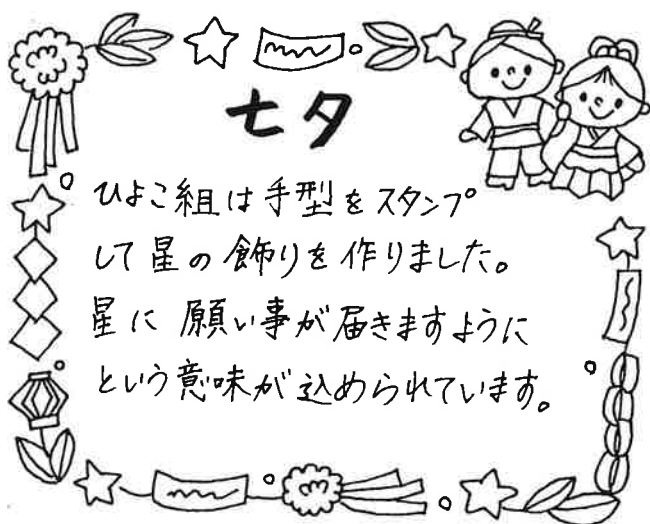 七夕
ひよこ組は手型をスタンプ
して星の飾りを作りました。
星に願い事が届きますように
という意味が込められています。